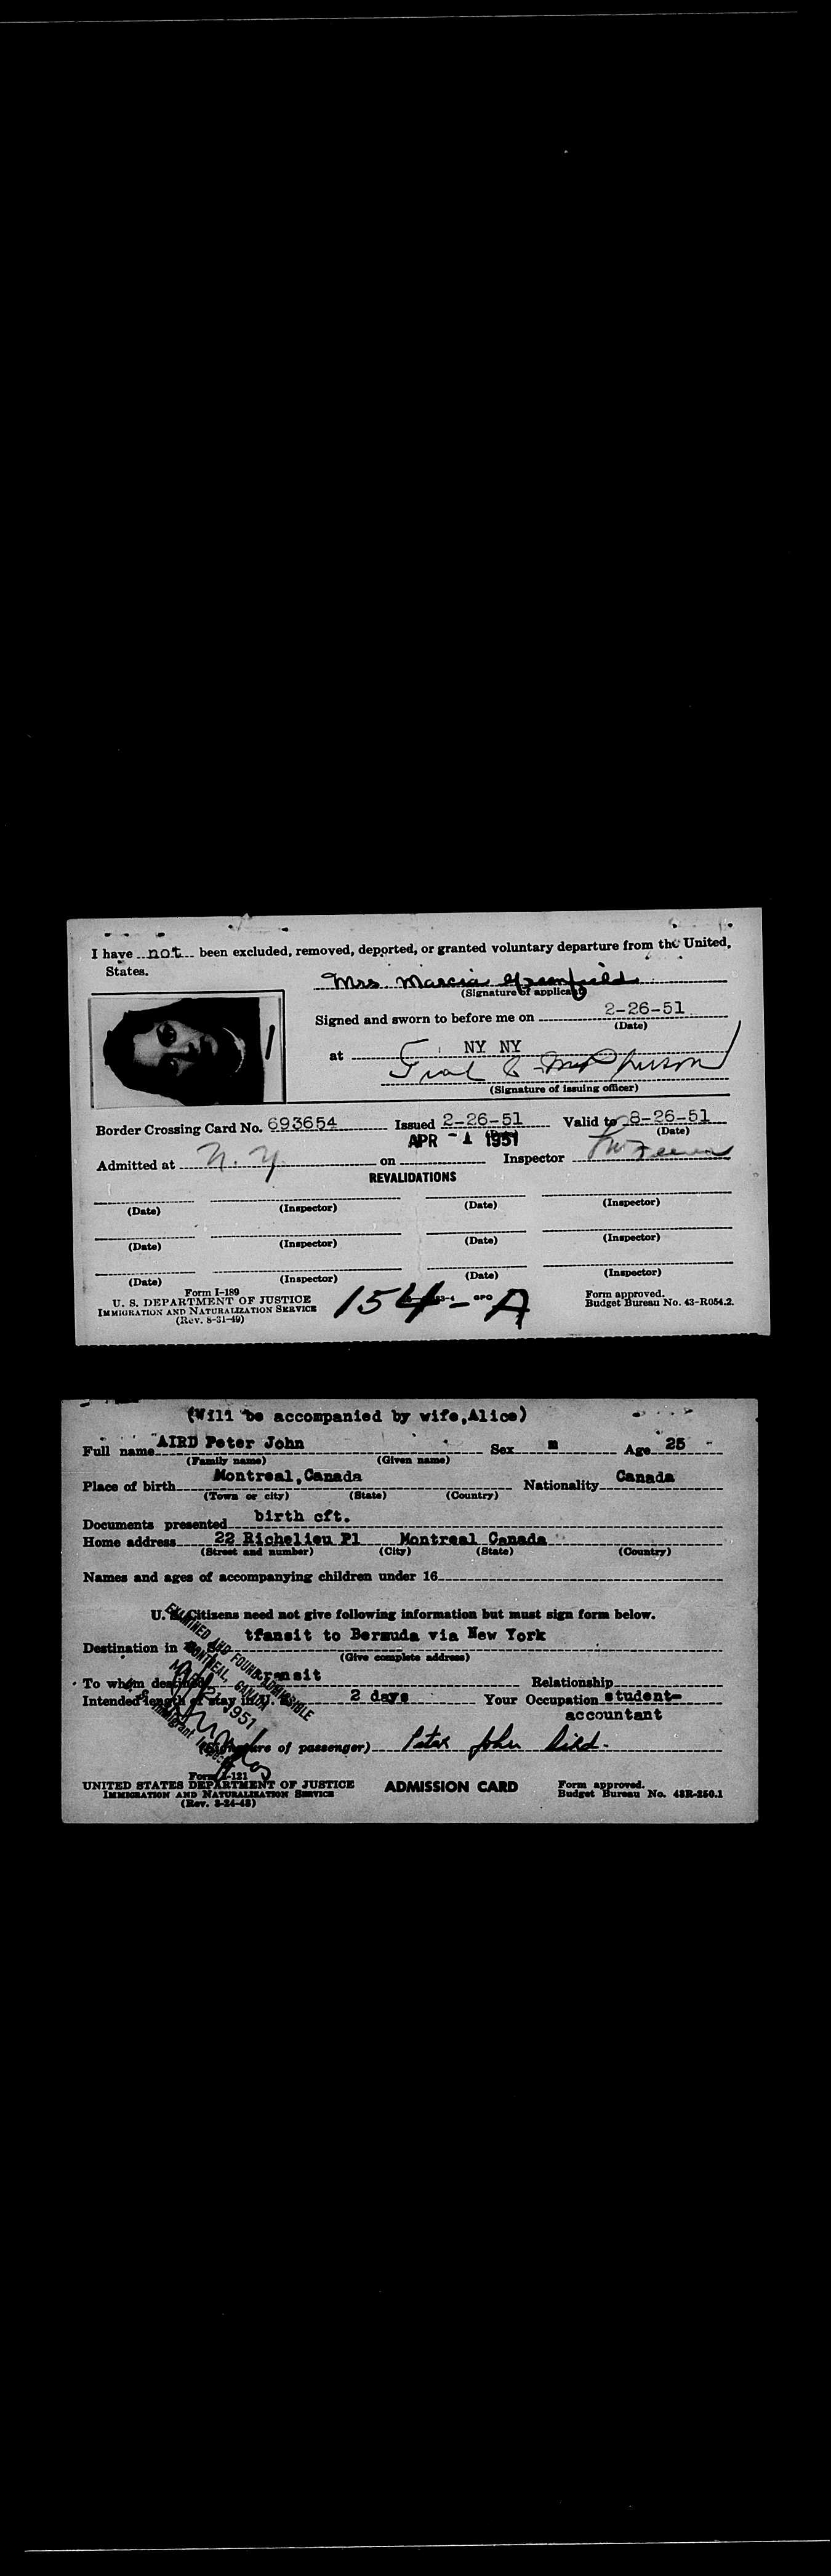 I have not been excluded, removed, deported, or granted voluntary departure from the United
States.
Mrs Marcia Greenfield
(Signature of applicant)
Signed and sworn to before me on 2-26-51
(Date)
at NY NY
(Signature of issuing officer)
Border Crossing Card No. 693654 Issued 2-26-51 Valid to 8-26-51
(Date)
APR - 1 1951
Admitted at N. Y. on Inspector
REVALIDATIONS
(Date) (Inspector) (Date) (Inspector)
(Date) (Inspector) (Date) (Inspector)
(Date) (Inspector) (Date) (Inspector)
Form I-189
U. S. DEPARTMENT OF JUSTICE
IMMIGRATION AND NATURALIZATION SERVICE
(Rev. 8-31-49)
154-A
GPO
Form approved.
Budget Bureau No. 43-R054.2.
(Will be accompanied by wife,Alice)
Full name AIRD Peter John Sex m Age 25
(Family name) (Given name)
Place of birth Montreal,Canada Nationality Canada
(Town or city) (State) (Country)
Documents presented birth cft.
Home address 22 Richelieu Pl Montreal Canada
(Street and number) (City) (State) (Country)
Names and ages of accompanying children under 16
U. S. Citizens need not give following information but must sign form below.
Destination in U. S. tfansit to Bermuda via New York
(Give complete address)
To whom destined transit Relationship
Intended length of stay in U. S. 2 days Your Occupation student-
accountant
(Signature of passenger) Peter John Aird.
EXAMINED AND FOUND ADMISSIBLE
MONTREAL, CANADA
1951
Immigrant Inspector
Form I-121
UNITED STATES DEPARTMENT OF JUSTICE
IMMIGRATION AND NATURALIZATION SERVICE
(Rev. 3-24-48)
ADMISSION CARD
Form approved.
Budget Bureau No. 43R-250.1